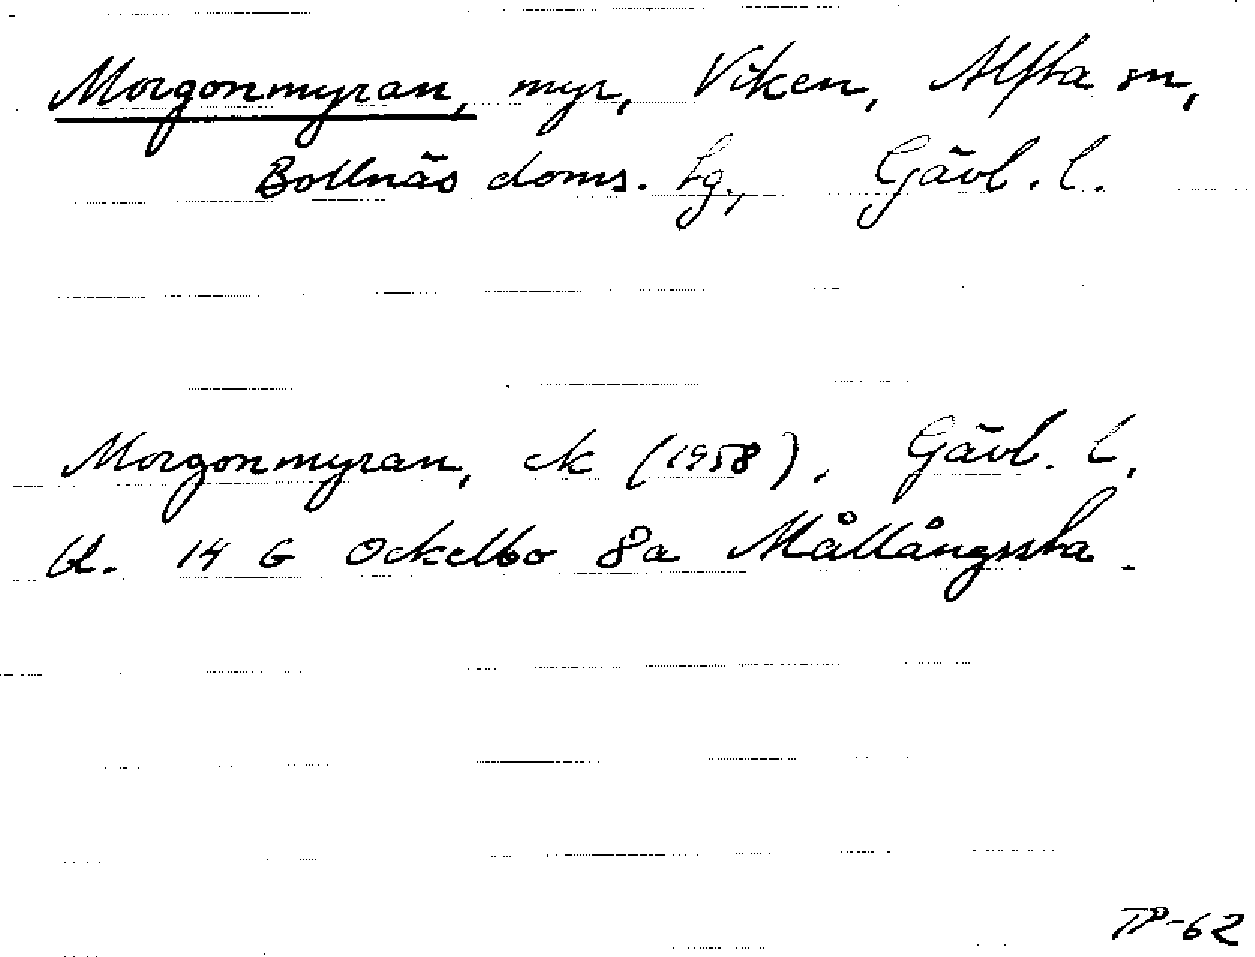 Morgonmyran, myr, Viken, Alfta sn,
Bollnäs doms. hg, Gävl. l.
Morgonmyran, ek (1958). Gävl. l,
bl. 14 G Ockelbo 8a Mållångssta.
TP-62